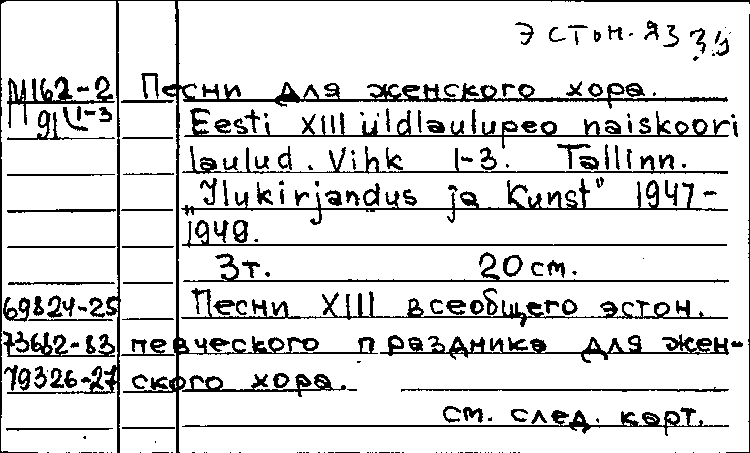 эстон. яз 39
М162-2 Песни для женского хора.
91 1-3 Eesti XIII üldlaulupeo naiskoori
laulud. Vihk 1-3. Tallinn.
„Ilukirjandus ja Kunst" 1947-
1949.
3т. 20 см.
69824-25 Песни XIII всеобщего эстон.
73682-83 певческого праздника для жен-
79326-27 ского хора.
см. след. карт.